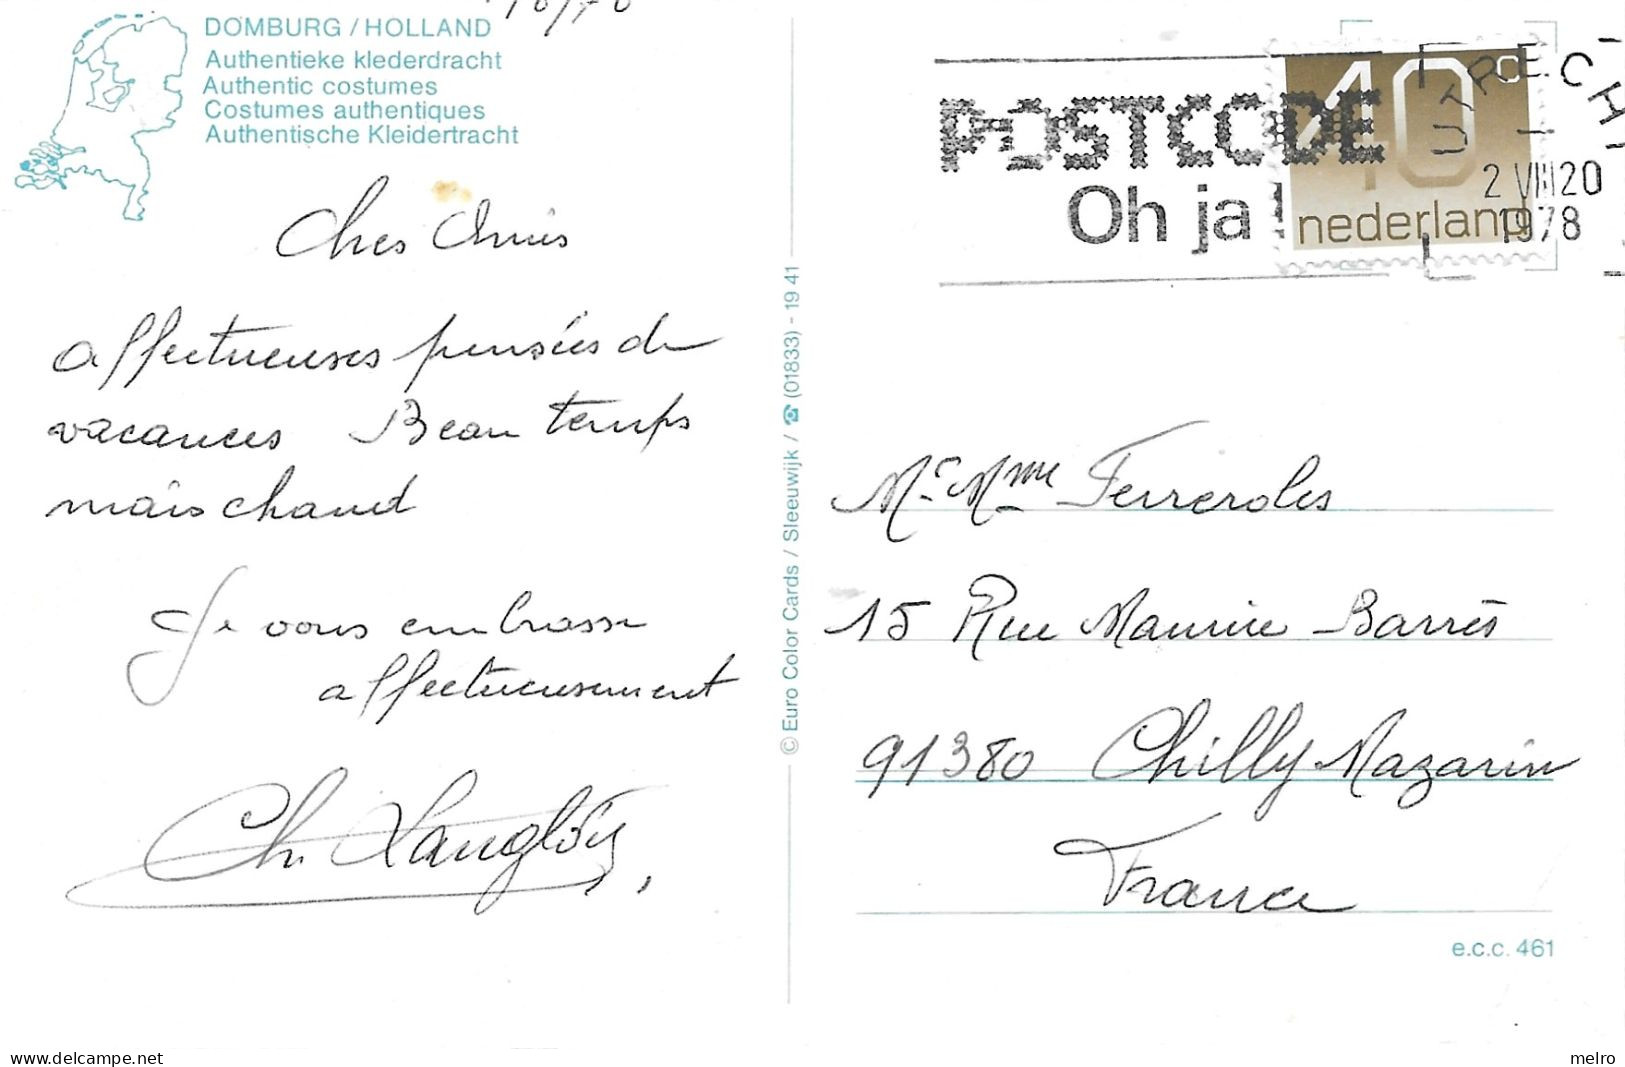 DOMBURG / HOLLAND
Authentieke klederdracht
Authentic costumes
Costumes authentiques
Authentische Kleidertracht
Chers Amis
affectueuses pensées de
vacances Beau temps
mais chaud
Je vous embrasse
affectueusement
Ch. Langlois
© Euro Color Cards / Sleeuwijk / ☎ (01833) - 19 41
POSTCODE
Oh ja!
40c
nederland
UTRECHT
2 VIII 20
1978
Mr. Mme Ferreroles
15 Rue Maurice Barrès
91380 Chilly Mazarin
France
e.c.c. 461
www.delcampe.net
melro